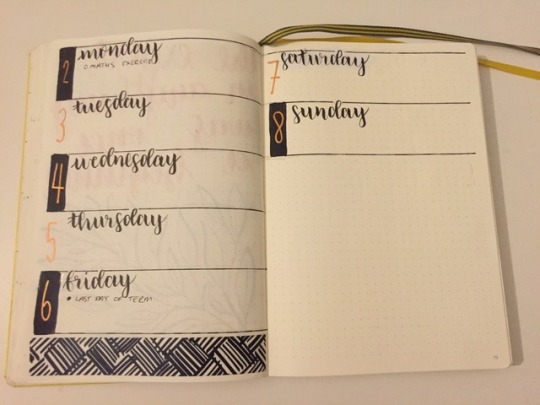 2 monday
○ MATHS EXERCISE
3 tuesday
4 wednesday
5 thursday
6 friday
• LAST DAY OF TERM
7 saturday
8 sunday